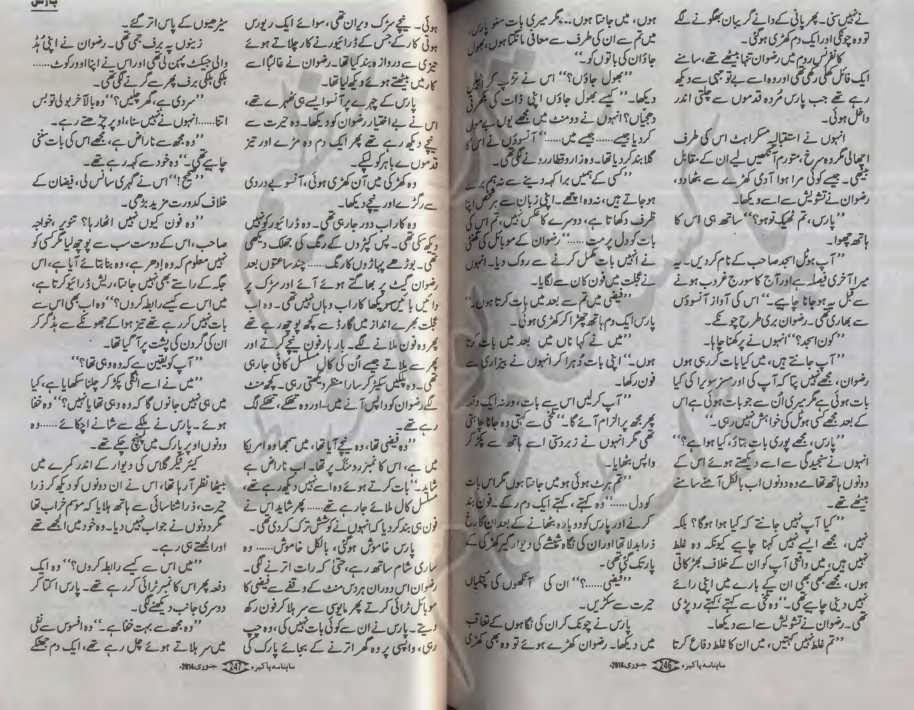 نے نہیں سنی۔ پھر پانی کے دانے گریبان بھگونے لگے
تو وہ چونکی اور ایک دم کھڑی ہوگئی۔
کانفرنس روم میں رضوان تنہا بیٹھے تھے، سامنے
ایک فائل کھلی رکھی تھی اور وہ اسے بے توجہی سے دیکھ
رہے تھے جب پارس مُردہ قدموں سے چلتی اندر
داخل ہوئی۔
انہوں نے استقبالیہ مسکراہٹ اس کی طرف
اچھالی مگر وہ سرخ، متورم آنکھیں لیے ان کے مقابل
بیٹھی۔ جیسے کوئی مرا ہوا آدمی کھڑے سے بٹھا دو،
رضوان نے تشویش سے اسے دیکھا۔
’’پارس، تم ٹھیک تو ہو؟‘‘ ساتھ ہی اس کا
ہاتھ چھوا۔
’’آپ ہوٹل امجد صاحب کے نام کردیں۔ یہ
میرا آخری فیصلہ ہے اور آج کا سورج غروب ہونے
سے قبل یہ ہوجانا چاہیے۔‘‘ اس کی آواز آنسوؤں
سے بھاری تھی۔ رضوان بری طرح چونکے۔
’’کون امجد؟‘‘ انہوں نے پرکھنا چاہا۔
’’آپ جانتے ہیں، میں کیا بات کررہی ہوں
رضوان، مجھے نہیں پتا کہ آپ کی اور مسز سویرا کی کیا
بات ہوئی ہے مگر میری اُن سے جو بات ہوئی ہے اس
کے بعد مجھے کسی ہوٹل کی خواہش نہیں رہی۔‘‘
’’پارس، مجھے پوری بات بتاؤ، کیا ہوا ہے؟‘‘
انہوں نے سنجیدگی سے اسے دیکھتے ہوئے اس کے
دونوں ہاتھ تھامے وہ دونوں اب بالکل آمنے سامنے
بیٹھے تھے۔
’’کیا آپ نہیں جانتے کہ کیا ہوا ہوگا؟ بلکہ
نہیں، مجھے ایسے نہیں کہنا چاہیے کیونکہ وہ غلط
نہیں ہیں، میں واقعی آپ کو ان کے خلاف بھڑکاتی
ہوں، مجھے کبھی بھی ان کے بارے میں اپنی رائے
نہیں دینی چاہیے تھی۔‘‘ وہ تلخی سے کہتے کہتے رو پڑی
تھی۔ رضوان نے تشویش سے اسے دیکھا۔
’’تم غلط نہیں کہتیں، میں ان کا غلط دفاع کرتا
ہوں، میں جانتا ہوں۔۔۔ مگر میری بات سنو پارس،
میں تم سے ان کی طرف سے معافی مانگتا ہوں، بھول
جاؤ ان کی باتوں کو۔‘‘
’’بھول جاؤں؟‘‘ اس نے تڑپ کر انہیں
دیکھا۔ ’’کیسے بھول جاؤں اپنی ذات کی بکھرتی
دھجیاں؟ انہوں نے دو منٹ میں مجھے یوں بے مول
کردیا جیسے...... جیسے میں......‘‘ آنسوؤں نے اس کا
گلا بند کردیا تھا۔ وہ زار و قطار رونے لگی تھی۔
’’کسی کے ہمیں برا کہہ دینے سے نہ ہم برے
ہوجاتے ہیں، نہ وہ اچھے۔ اپنی زبان سے ہر شخص اپنا
ظرف دکھاتا ہے، دوسرے کا عکس نہیں، تم اس کی
بات کو دل پر مت......‘‘ رضوان کے موبائل کی گھنٹی
نے انہیں بات مکمل کرنے سے روک دیا۔ انہوں
نے عجلت میں فون کان سے لگایا۔
’’فیضی میں تم سے بعد میں بات کرتا ہوں۔‘‘
پارس ایک دم ہاتھ چھڑا کر کھڑی ہوئی۔
’’میں نے کہا ناں میں بعد میں بات کرتا
ہوں۔‘‘ اپنی بات دُہرا کر انہوں نے بیزاری سے
فون رکھا۔
’’آپ کرلیں اس سے بات، ورنہ ایک دفعہ
پھر مجھ پر الزام آئے گا۔‘‘ تلخی سے کہتی وہ جانا چاہتی
تھی مگر انہوں نے زبردستی اسے ہاتھ سے پکڑ کر
واپس بٹھایا۔
’’تم ہرٹ ہوئی ہو میں جانتا ہوں مگر اس بات
کو دل......‘‘ وہ کہتے کہتے ایک دم رکے۔ فون بند
کرنے اور پارس کو دوبارہ بٹھانے کے بعد ان کا رخ
ذرا بدلا تھا اور ان کی نگاہ شیشے کی دیوار گیر کھڑکی کے
پار تک گئی تھی۔
’’فیضی......؟‘‘ ان کی آنکھوں کی پتلیاں
حیرت سے سکڑیں۔
پارس نے چونک کر ان کی نگاہوں کے تعاقب
میں دیکھا۔ رضوان کھڑے ہوئے تو وہ بھی کھڑی
ماہنامہ پاکیزہ 246 جنوری 2014ء
ہوئی۔ نیچے سڑک ویران تھی، سوائے ایک ریورس
ہوتی کار کے جس کے ڈرائیور نے کار چلاتے ہوئے
تیزی سے دروازہ بند کیا تھا۔ رضوان نے غالباً اسے
کار میں بیٹھتے ہوئے دیکھ لیا تھا۔
پارس کے چہرے پر آنسو ویسے ہی ٹھہرے تھے،
اس نے بے اختیار رضوان کو دیکھا۔ وہ حیرت سے
نیچے دیکھ رہے تھے پھر ایک دم وہ مڑے اور تیز
قدموں سے باہر کو لپکے۔
وہ کھڑکی میں آن کھڑی ہوئی، آنسو بے دردی
سے رگڑے اور نیچے دیکھا۔
وہ کار اب دور جارہی تھی۔ وہ ڈرائیور کو نہیں
دیکھ سکی تھی۔ بس کپڑوں کے رنگ کی جھلک دیکھی
تھی۔ بوڑھے پہاڑوں کا رنگ...... چند ساعتوں بعد
رضوان گیٹ پر بھاگتے ہوئے آئے اور سڑک پر
دائیں بائیں سو دیکھا کار اب وہاں نہیں تھی۔ وہ اب
عجلت بھرے انداز میں گارڈ سے کچھ پوچھ رہے تھے
پھر وہ فون ملانے لگے۔ بار بار فون نیچے کرتے اور
پھر سے ملاتے جیسے اُن کی کال مسلسل کاٹی جارہی
تھی۔ وہ پلکیں سکیڑ کر سارا منظر دیکھتی رہی۔ کچھ منٹ
لگے رضوان کو واپس آنے میں۔ اور وہ تھکے، تھکے لگ
رہے تھے۔
’’وہ فیضی تھا، وہ نیچے آیا تھا، میں سمجھا وہ امریکا
میں ہے، اس کا نمبر رومنگ پر تھا۔ اب ناراض ہے
شاید۔‘‘ بات کرتے ہوئے وہ اسے نہیں دیکھ رہے تھے،
مسلسل کال ملائے جارہے تھے...... پھر شاید اس نے
فون ہی بند کردیا کہ انہوں نے کوشش ترک کردی تھی۔
پارس خاموش ہوگئی، بالکل خاموش...... وہ
ساری شام ساتھ رہے، حتیٰ کہ رات اترنے لگی۔
رضوان اس دوران ہر دس منٹ کے وقفے سے فیضی کا
موبائل ٹرائی کرتے پھر مایوسی سے سر ہلا کر فون رکھ
دیتے۔ پارس نے ان سے کوئی بات نہیں کی، وہ چپ
رہی، واپسی پر وہ گھر اترنے کے بجائے پارک کی
سیڑھیوں کے پاس اتر گئے۔
زینوں پہ برف جمی تھی۔ رضوان نے اپنی ہُڈ
والی جیکٹ پہن لی تھی اور اس نے اپنا اوور کوٹ......
ہلکی ہلکی برف پھر سے گرنے لگی تھی۔
’’سردی ہے، گھر چلیں؟‘‘ وہ بالآخر بولی تو بس
اتنا...... انہوں نے نہیں سنا، اوپر چڑھتے رہے۔
’’وہ مجھ سے ناراض ہے، مجھے اس کی بات سننی
چاہیے تھی۔‘‘ وہ خود سے کہہ رہے تھے۔
’’صحیح!‘‘ اس نے گہری سانس لی، فیضان کے
خلاف کدورت مزید بڑھی۔
’’وہ فون کیوں نہیں اٹھا رہا؟ تنویر، خواجہ
صاحب، اس کے دوست سب سے پوچھ لیا مگر کسی کو
نہیں معلوم کہ وہ اِدھر ہے، وہ بنا بتائے آیا ہے، اس
جگہ کے راستے بھی نہیں جانتا، ریش ڈرائیو کرتا ہے،
میں اس سے کیسے رابطہ کروں؟‘‘ وہ اب بھی اس سے
بات نہیں کررہے تھے تیز ہوا کے جھونکے سے ہڈ گر کر
ان کی گردن کی پشت پر آ گیا تھا۔
’’آپ کو یقین ہے کہ وہ وہی تھا؟‘‘
’’میں نے اسے انگلی پکڑ کر چلنا سکھایا ہے، کیا
میں ہی نہیں جانوں گا کہ وہ وہی تھا یا نہیں؟‘‘ وہ خفا
ہوئے۔ پارس نے ہلکے سے شانے اچکائے...... وہ
دونوں اوپر پارک میں پہنچ چکے تھے۔
کیئر ٹیکر گلاس کی دیوار کے اندر کمرے میں
بیٹھا نظر آرہا تھا، اس نے ان دونوں کو دیکھ کر ذرا
حیرت، ذرا شناسائی سے ہاتھ ہلایا کہ موسم خراب تھا
مگر دونوں نے جواب نہیں دیا۔ وہ خود میں الجھے تھے
اور الجھتے ہی رہے۔
’’میں اس سے کیسے رابطہ کروں؟‘‘ وہ ایک
دفعہ پھر اس کا نمبر ٹرائی کررہے تھے۔ پارس اکتا کر
دوسری جانب دیکھنے لگی۔
’’وہ مجھ سے بہت خفا ہے۔‘‘ وہ افسوس سے نفی
میں سر ہلاتے ہوئے چل رہے تھے، ایک دم جھٹکے
ماہنامہ پاکیزہ 247 جنوری 2014ء